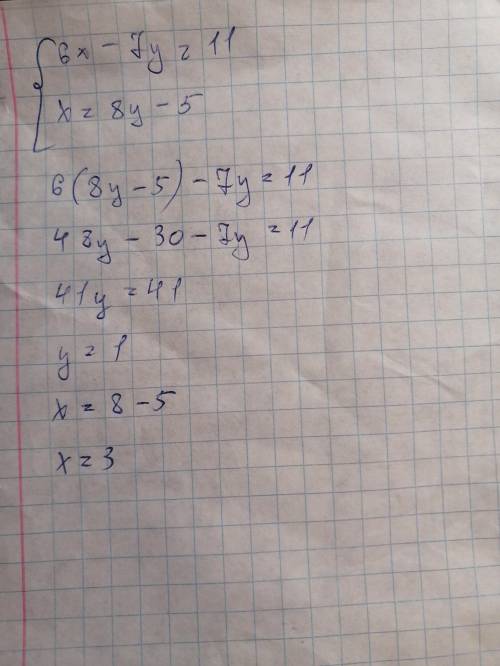 6x - 7y = 11
x = 8y - 5
6(8y - 5) - 7y = 11
48y - 30 - 7y = 11
41y = 41
y = 1
x = 8 - 5
x = 3